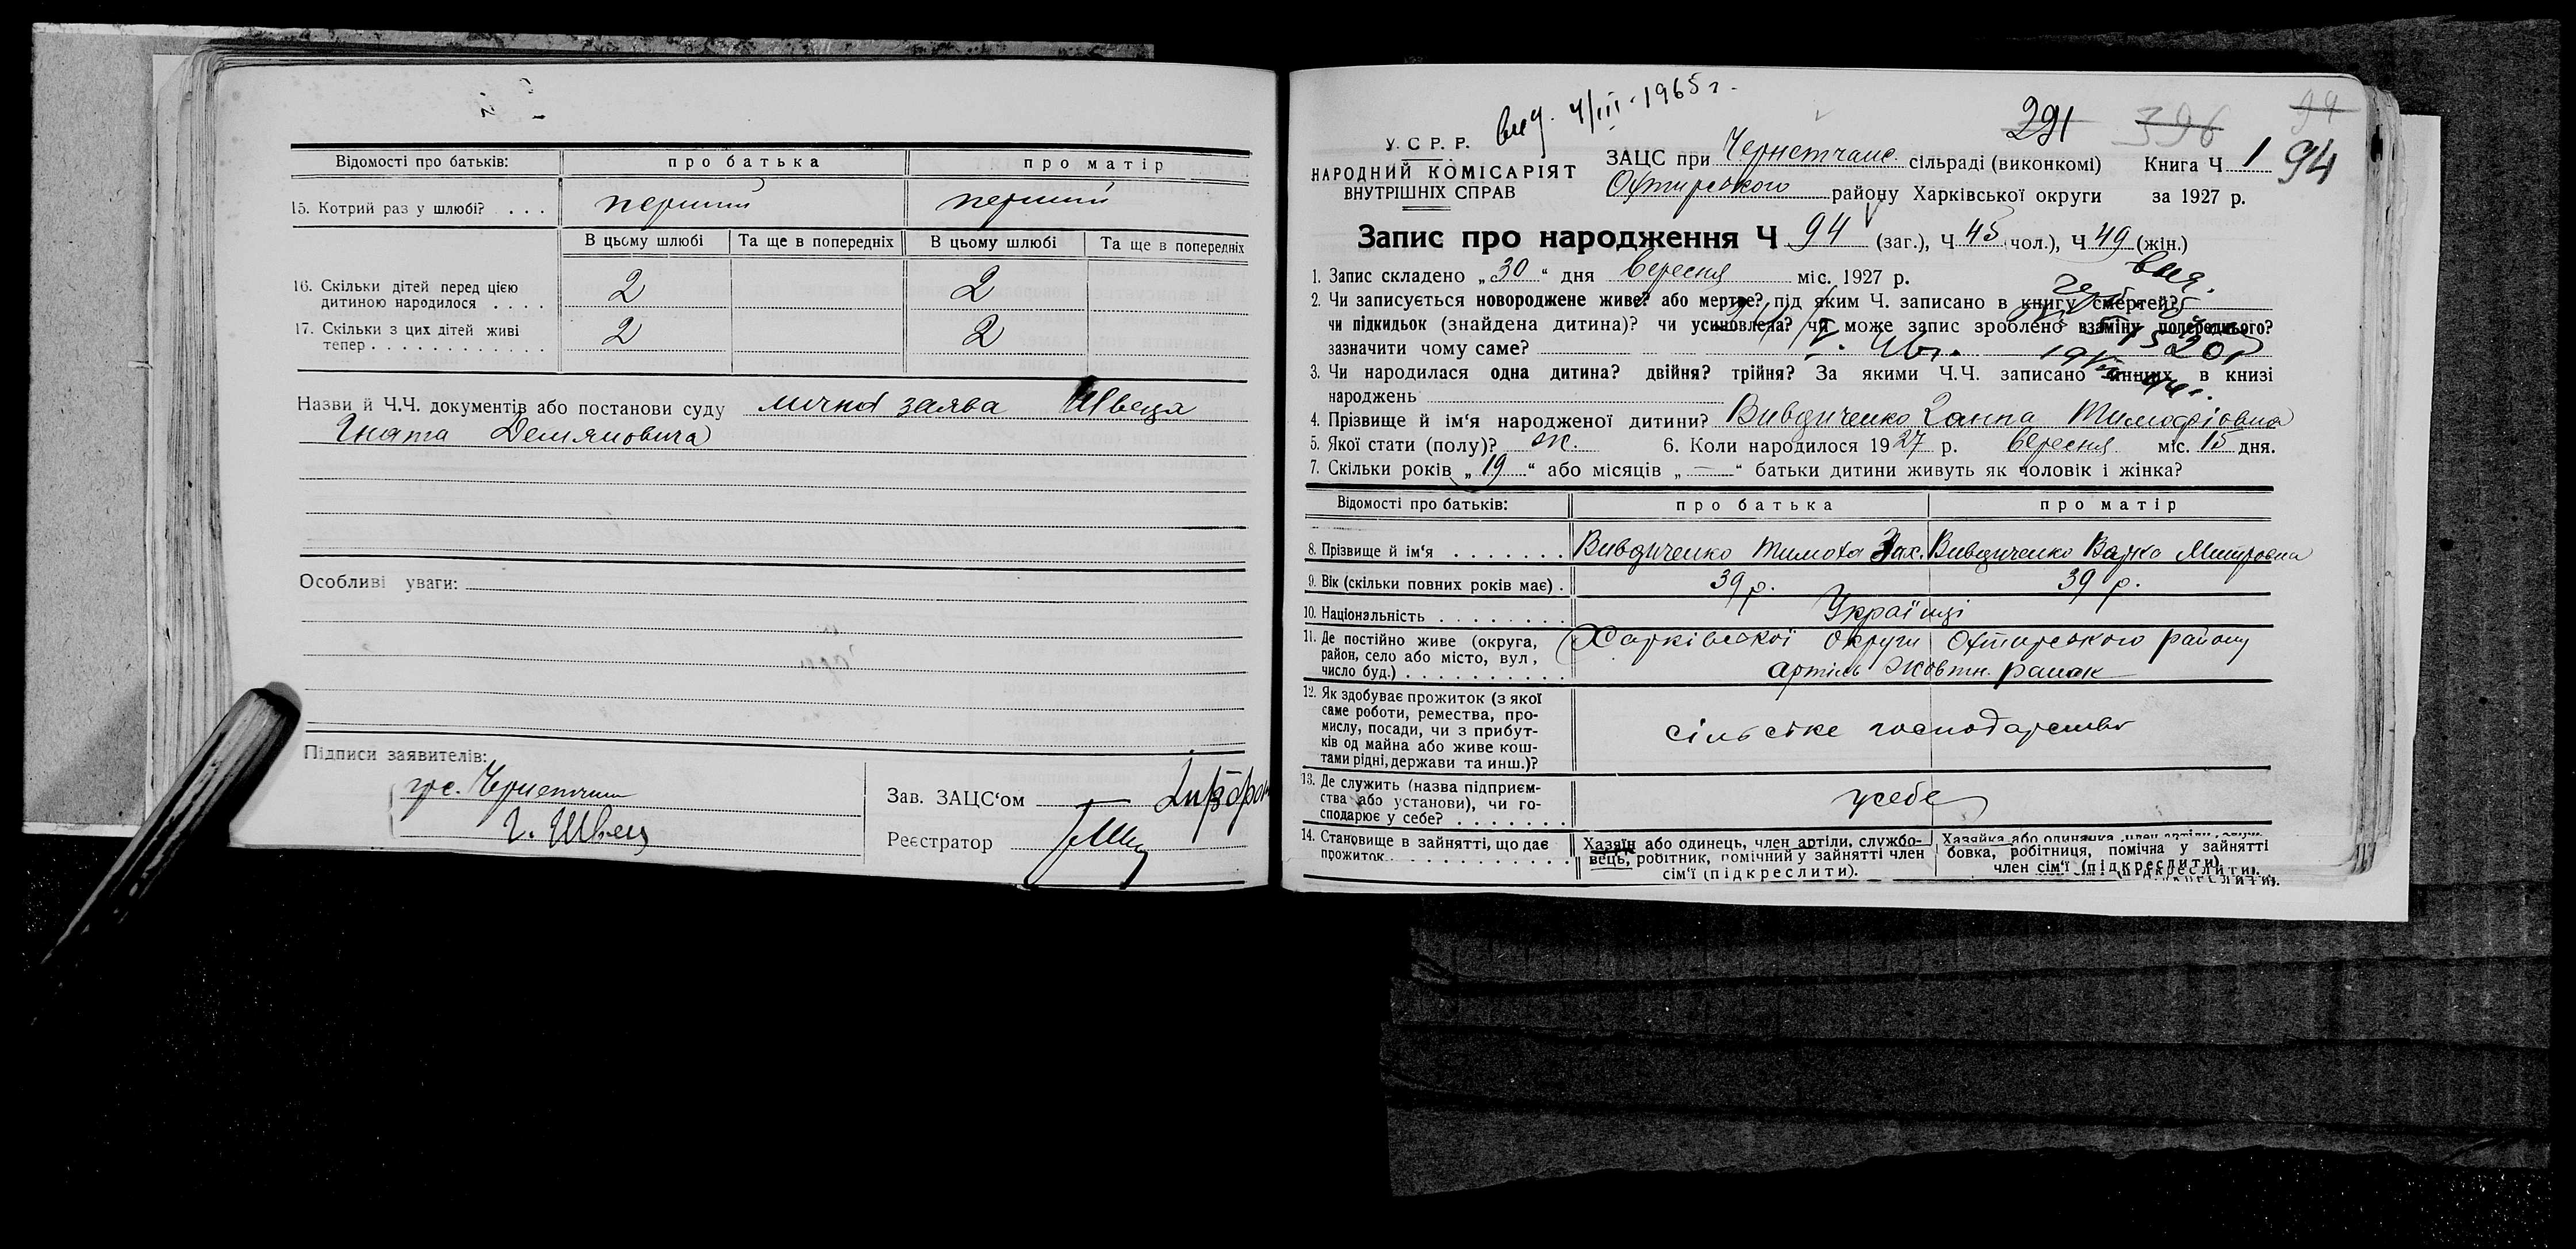 Відомості про батьків: про батька про матір
15. Котрий раз у шлюбі? . . . перший перший
В цьому шлюбі Та ще в попередніх В цьому шлюбі Та ще в попередніх
16. Скільки дітей перед цією
дитиною народилося . . . . 2 2
17. Скільки з цих дітей живі
тепер . . . . . . . . . . . . 2 2
Назви й Ч.Ч. документів або постанови суду лична заява Швеця
Гната Демяновича
Особливі уваги:
Підписи заявителів:
гр. с. Чернеччин
Г. Швець
Зав. ЗАЦС‘ом
Реєстратор
вид. 4/III-1965 г.
291 396 94
У. С. Р. Р.
НАРОДНИЙ КОМІСАРІЯТ
ВНУТРІШНІХ СПРАВ
ЗАЦС при Чернетчанс. сільраді (виконкомі) Книга Ч 1 94
Охтирського району Харківської округи за 1927 р.
Запис про народження Ч 94 (заг.), Ч 45 (чол.), Ч 49 (жін.)
1. Запис складено „30“ дня вересня міс. 1927 р.
2. Чи записується новороджене живе? або мертве? під яким Ч. записано в книгу смертей?
чи підкидьок (знайдена дитина)? чи усиновлена? чи може запис зроблено взаміну попереднього?
зазначити чому саме?
3. Чи народилася одна дитина? двійня? трійня? За якими Ч.Ч. записано инших в книзі
народжень
4. Прізвище й ім‘я народженої дитини? Вивдиченко Ганна Тимофіовна
5. Якої стати (полу)? ж. 6. Коли народилося 1927 р. вересня міс. 15 дня.
7. Скільки років „19“ або місяців „—“ батьки дитини живуть як чоловік і жінка?
Відомості про батьків: про батька про матір
8. Прізвище й ім‘я . . . . . . . Вивдиченко Тимоха Зах. Вивдиченко Варка Митровна
9. Вік (скільки повних років має) . 39 р. 39 р.
10. Національність . . . . . . . . Українці
11. Де постійно живе (округа, Харківської округи Охтирського району
район, село або місто, вул., артіль Жовтн. ранок
число буд.) . . . . . . . . . .
12. Як здобуває прожиток (з якої
саме роботи, ремества, про-
мислу, посади, чи з прибут- сільське господарство
ків од майна або живе кош-
тами рідні, держави та инш.)?
13. Де служить (назва підприєм-
ства або установи), чи го- усебе
сподарює у себе? . . . . . . .
14. Становище в зайнятті, що дає Хазяїн або одинець, член артіли, службо- Хазяйка або одиначка, член артіли, служ-
прожиток . . . . . . . . . . . вець, робітник, помічний у зайнятті член бовка, робітниця, помічна у зайнятті
сім‘ї (підкреслити). член сім‘ї (підкреслити).